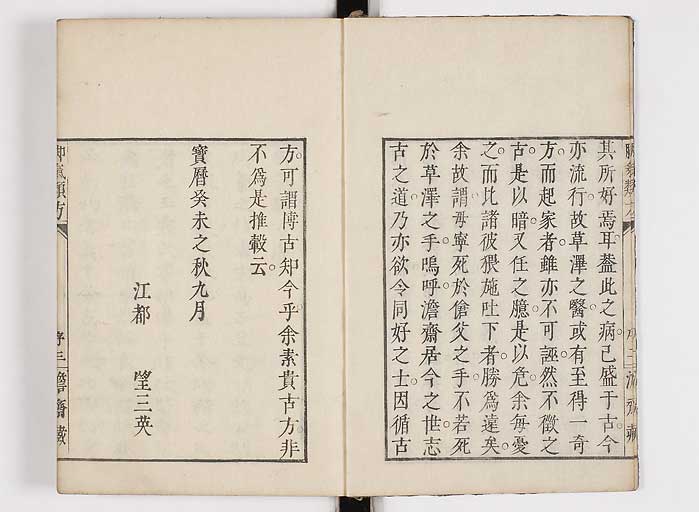 其所好焉耳蓋此之病已盛于古今
亦流行故草澤之醫或有至得一奇
方而起家者雖亦不可誣然不徵之
古是以暗又任之臆是以危余每憂
之而比諸彼猥施吐下者勝為遠矣
余故謂毋寧死於傖父之手不若死
於草澤之手嗚呼澹齋居今之世志
古之道乃亦欲令同好之士因循古
方可謂博古知今乎余素貴古方非
不為是推轂云
寶曆癸未之秋九月
江都 望三英
脚氣類方
序三
澹齋藏